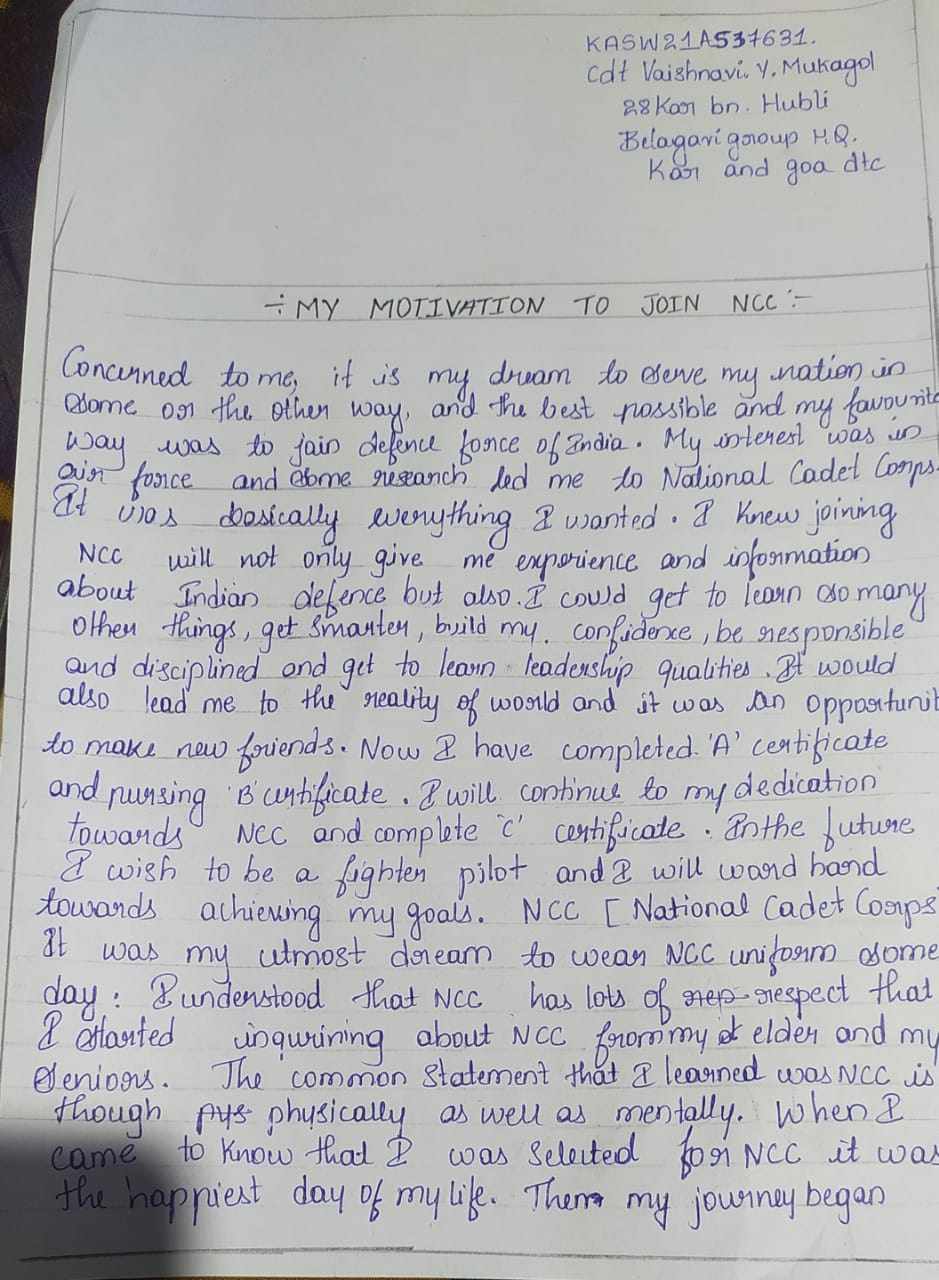 KASW21A537631.
Cdt Vaishnavi. Y. Mukagol
28 Kar bn. Hubli
Belagavi group H.Q.
Kar and goa dtc
÷ MY MOTIVATION TO JOIN NCC :-
Concurned to me, it is my dream to serve my nation in
some or the other way, and the best possible and my favourite
way was to join defence force of India. My interest was in
air force and some research led me to National Cadet Corps.
It was basically everything I wanted. I knew joining
NCC will not only give me experience and information
about Indian defence but also. I could get to learn so many
other things, get smarter, build my. confidence, be responsible
and disciplined and get to learn leadership qualities. It would
also lead me to the reality of world and it was an opportunit
to make new friends. Now I have completed 'A' certificate
and pursing 'B' certificate. I will continue to my dedication
towards NCC and complete 'C' certificate. In the future
I wish to be a fighter pilot and I will word hard
towards achieving my goals. NCC [National Cadet Corps
It was my utmost dream to wear NCC uniform some
day: I understood that NCC has lots of rep respect that
I started inqurining about NCC from my elder and my
seniors. The common statement that I learned was NCC is
though pys physically as well as mentally. When I
came to know that I was selected for NCC it was
the happiest day of my life. Then my journey began